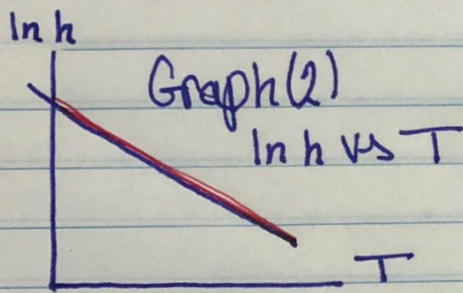 ln h
Graph(2)
ln h vs T
T